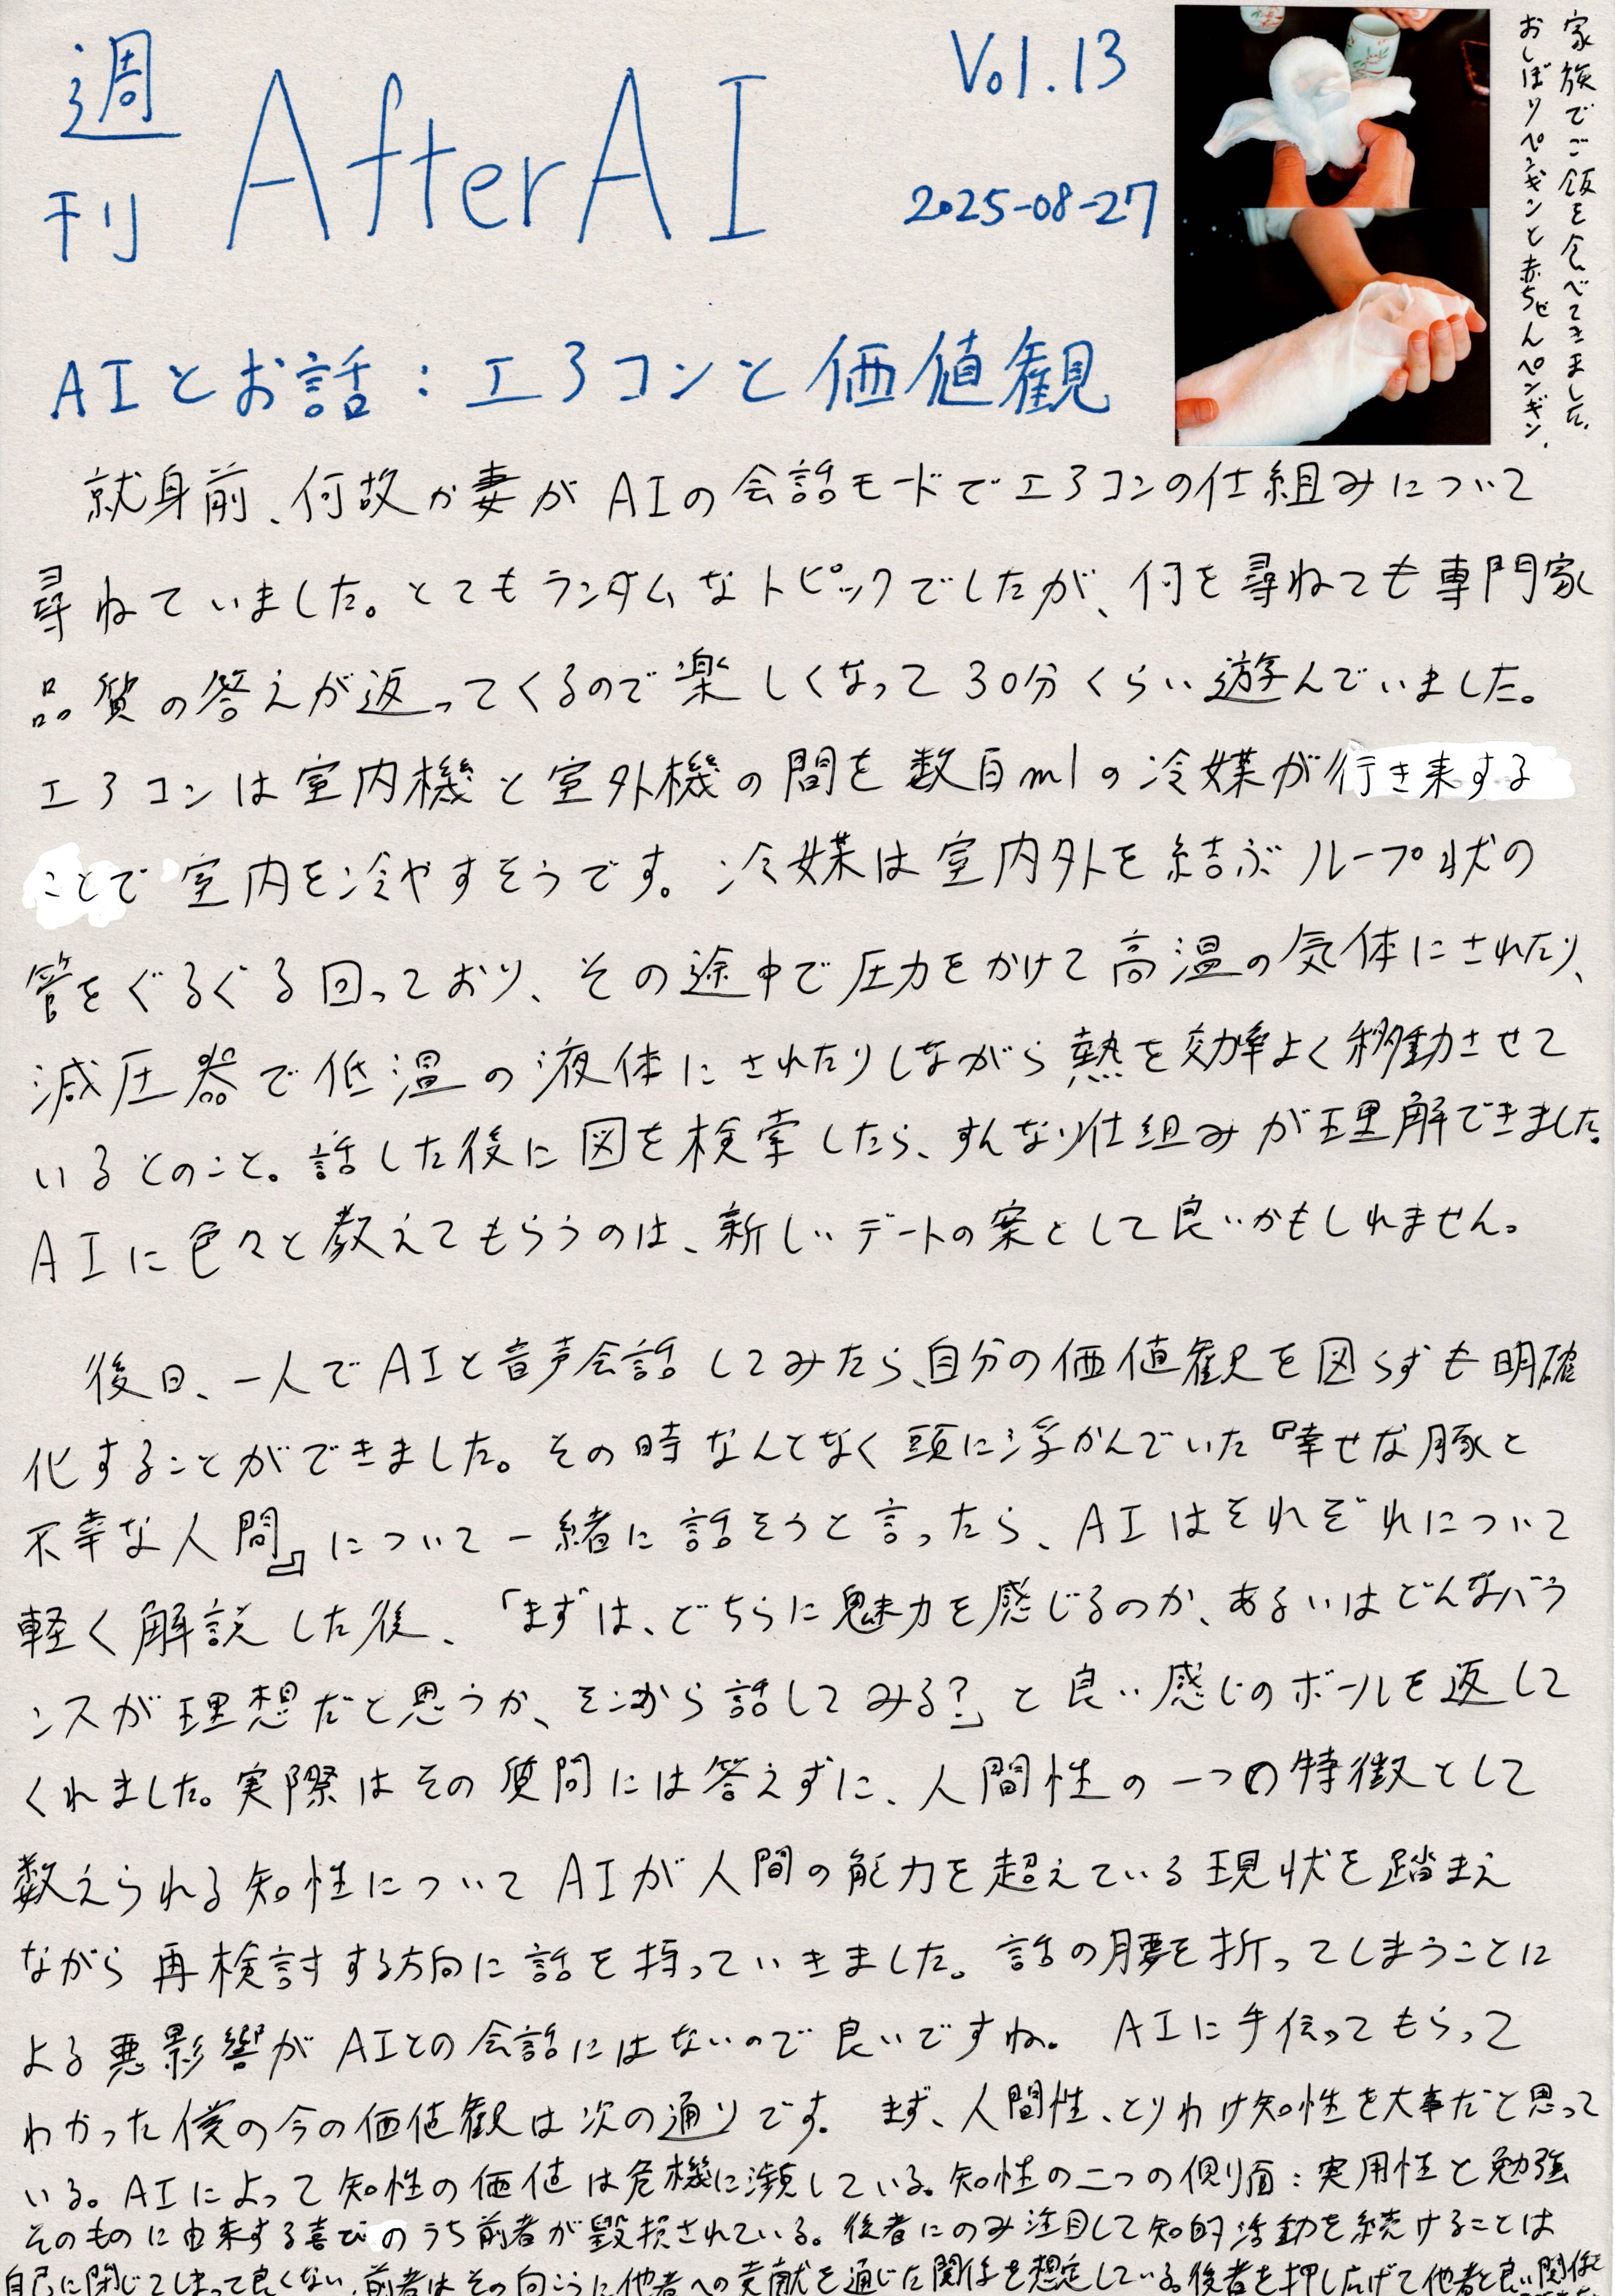 週刊 AfterAI
Vol.13
2025-08-27
家族でご飯を食べてきました。
おしぼりペンギンと赤ちゃんペンギン。
AIとお話：エアコンと価値観
就身前、何故か妻がAIの会話モードでエアコンの仕組みについて
尋ねていました。とてもランダムなトピックでしたが、何を尋ねても専門家
品質の答えが返ってくるので楽しくなって30分くらい遊んでいました。
エアコンは室内機と室外機の間を数百mlの冷媒が行き来する
ことで室内を冷やすそうです。冷媒は室内外を結ぶループ状の
管をぐるぐる回っており、その途中で圧力をかけて高温の気体にされたり、
減圧器で低温の液体にされたりしながら熱を効率よく移動させて
いるとのこと。話した後に図を検索したら、すんなり仕組みが理解できました。
AIに色々と教えてもらうのは、新しいデートの案として良いかもしれません。
後日、一人でAIと音声会話してみたら、自分の価値観を図らずも明確
化することができました。その時なんとなく頭に浮かんでいた『幸せな豚と
不幸な人間』について一緒に話そうと言ったら、AIはそれぞれについて
軽く解説した後、「まずは、どちらに魅力を感じるのか、あるいはどんなバラ
ンスが理想だと思うか、そこから話してみる？」と良い感じのボールを返して
くれました。実際はその質問には答えずに、人間性の一つの特徴として
数えられる知性についてAIが人間の能力を超えている現状を踏まえ
ながら再検討する方向に話を持っていきました。話の腰を折ってしまうことに
よる悪影響がAIとの会話にはないので良いですね。AIに手伝ってもらって
わかった僕の今の価値観は次の通りです。まず、人間性、とりわけ知性を大事だと思って
いる。AIによって知性の価値は危機に瀕している。知性の二つの側面：実用性と勉強
そのものに由来する喜びのうち前者が毀損されている。後者にのみ注目して知的活動を続けることは
自己に閉じてしまって良くない。前者はその向こうに他者への貢献を通じた関係を想定している。後者を押し広げて他者と良い関係を